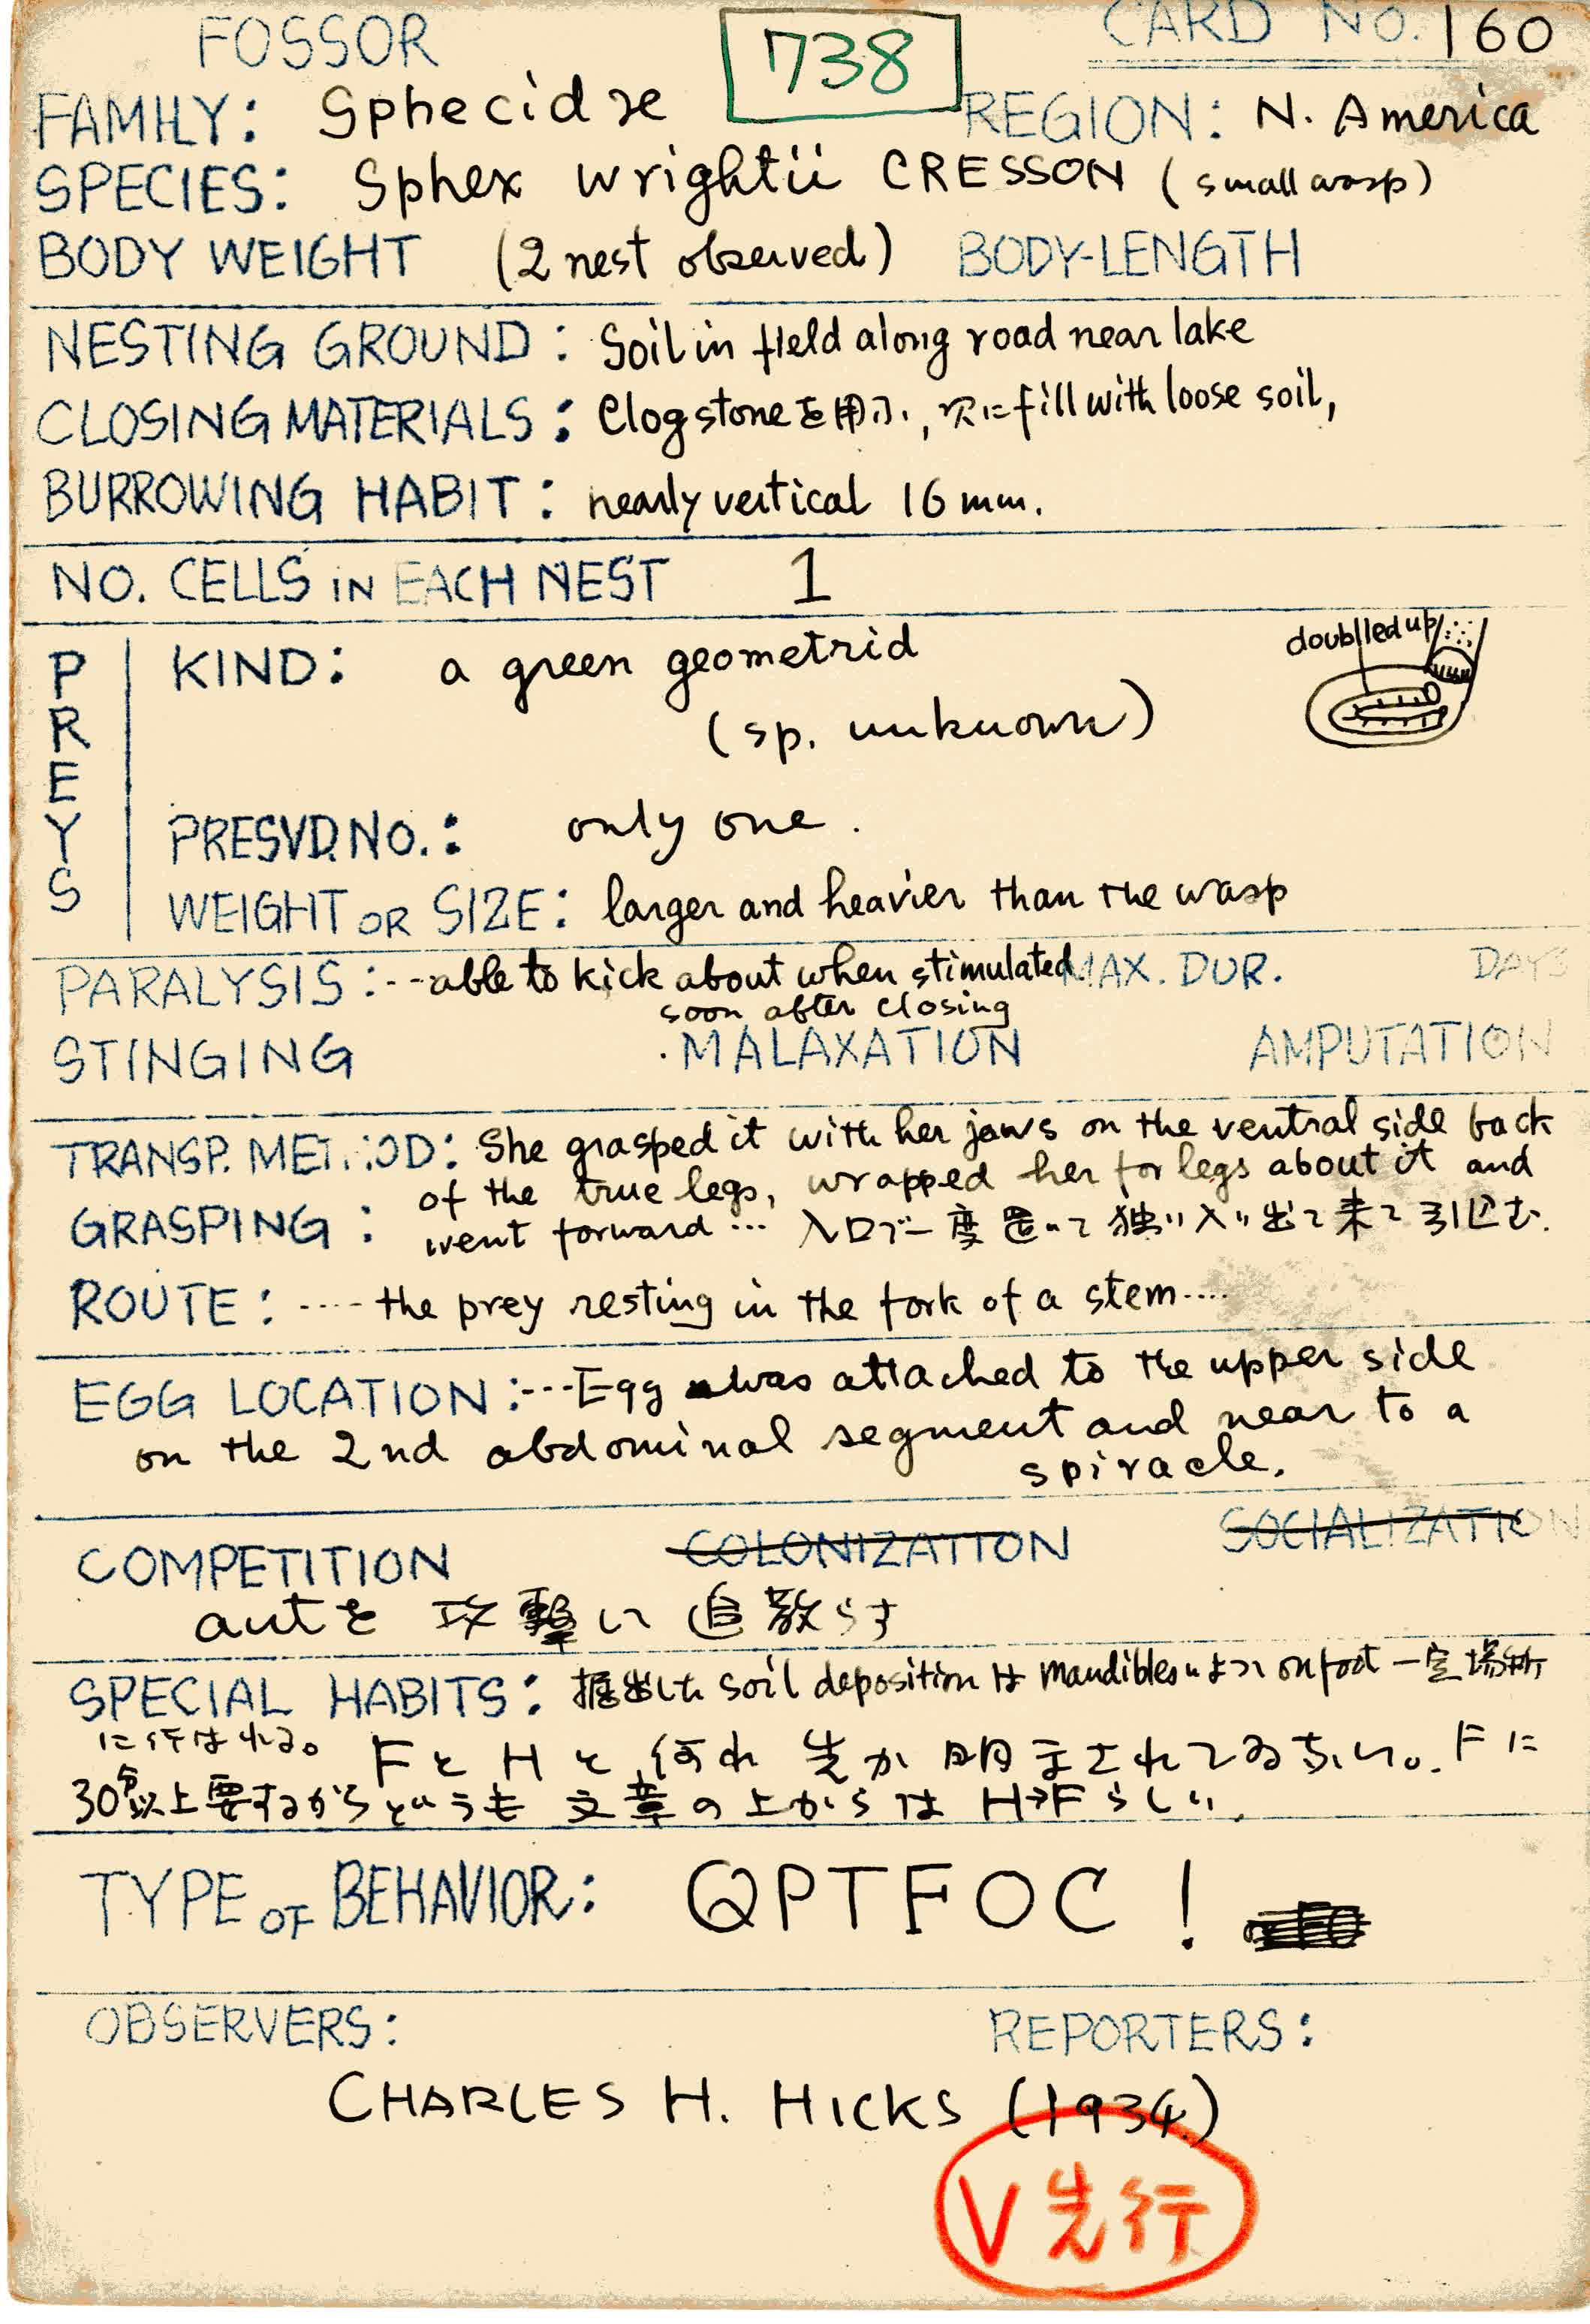 FOSSOR 738 CARD NO. 160
FAMILY: Sphecidae REGION: N. America
SPECIES: Sphex wrightii CRESSON (small wasp)
BODY WEIGHT (2 nest observed) BODY-LENGTH
NESTING GROUND: Soil in field along road near lake
CLOSING MATERIALS: Clog stoneを用ひ, 次にfill with loose soil,
BURROWING HABIT: nearly vertical 16 mm.
NO. CELLS iN EACH NEST 1
PREYS
KIND: a green geometrid
(sp. unknown)
doublled up
PRESVD. NO.: only one.
WEIGHT OR SIZE: larger and heavier than the wasp
PARALYSIS: --able to kick about when stimulated MAX. DUR. DAYS
soon after closing
STINGING MALAXATION AMPUTATION
TRANSP. METHOD: She grasped it with her jaws on the ventral side back
of the true legs, wrapped her for legs about it and
GRASPING: went forward... 入口で一度置いて独り入り出て来て引込む.
ROUTE: ---- the prey resting in the fork of a stem----
EGG LOCATION: ---Egg was attached to the upper side
on the 2nd abdominal segment and near to a
spiracle.
COMPETITION COLONIZATION SOCIALIZATION
antを攻撃し追散らす
SPECIAL HABITS: 掘出した soil deposition は mandibles によつて on foot 一定場所
に行はれる。FとHと何れ先か明まされてゐない。Fに
30分以上要するからというも文章の上からはH→Fらしい.
TYPE OF BEHAVIOR: QPTFOC!
OBSERVERS: REPORTERS:
CHARLES H. HICKS (1934)
V先行